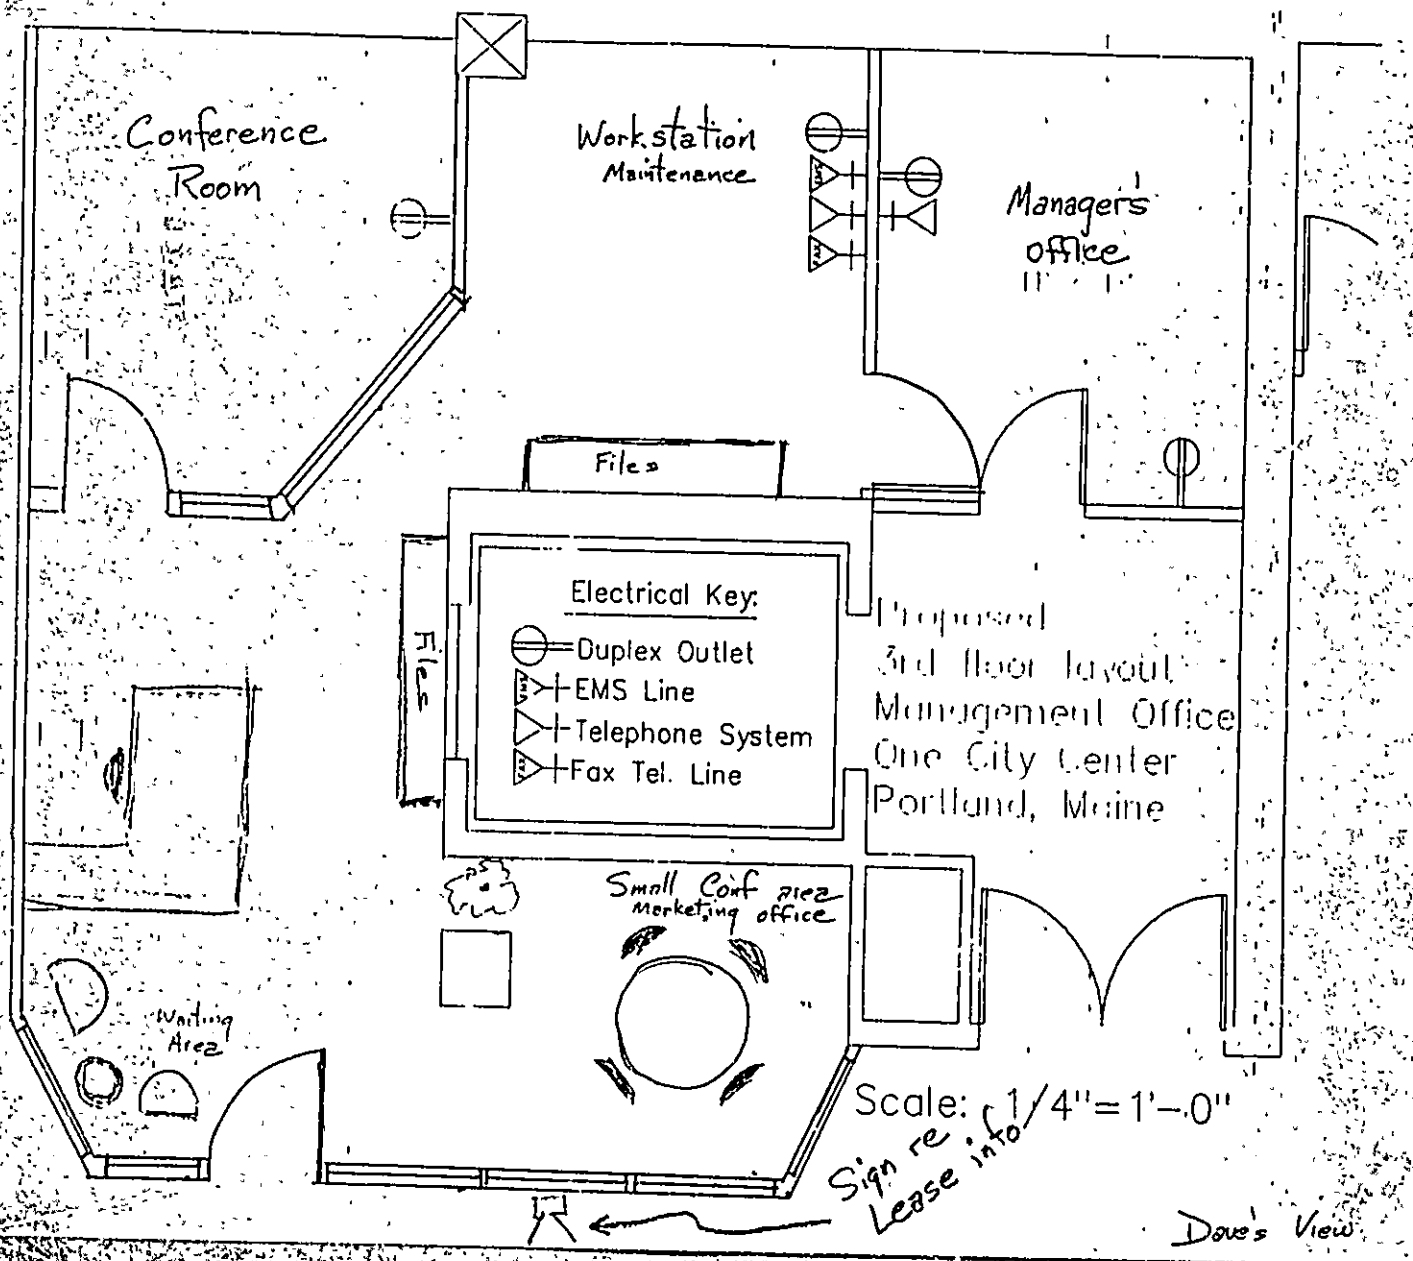 Conference
Room
Workstation
Maintenance
EMS
FAX
Manager's
office
Files
Files
Electrical Key:
Duplex Outlet
EMS Line
Telephone System
Fax Tel. Line
EMS
FAX
Proposed
3rd floor layout
Management Office
One City Center
Portland, Maine
Small Conf area
Marketing office
Waiting
Area
Scale: 1/4"=1'-0"
Sign re
Lease info
Dave's View